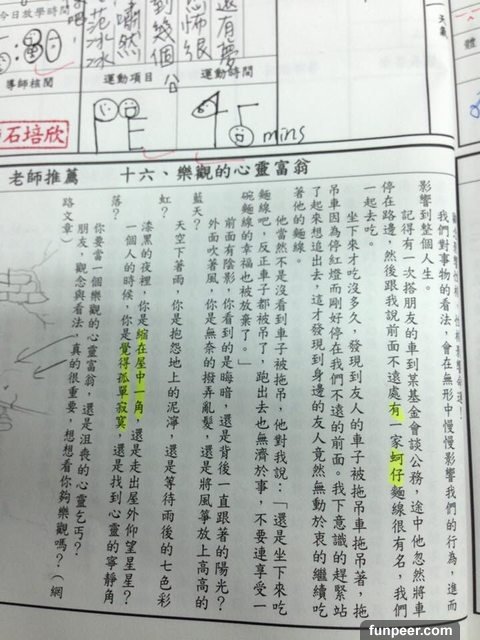 今日放學時間
導師核閱
運動項目
運動時間
石培欣
PE
45
mins
還有夢
老師推薦
十六、樂觀的心靈富翁
我們對事物的看法，會在無形中慢慢影響我們的行為，進而
影響到整個人生。
記得有一次搭朋友的車到某基金會談公務，途中他忽然將車
停在路邊，然後跟我說前面不遠處有一家蚵仔麵線很有名，我們
一起去吃。
坐下來才吃沒多久，發現到友人的車子被拖吊車拖吊著，拖
吊車因為停紅燈而剛好停在我們不遠的前面。我下意識的趕緊站
了起來想追出去，這才發現到身邊的友人竟然無動於衷的繼續吃
著他的麵線。
他當然不是沒看到車子被拖吊，他對我說：「還是坐下來吃
麵線吧，反正車子都被吊了，跑出去也無濟於事，不要連享受一
碗麵線的幸福也被放棄了。」
前面有陰影，你看到的是晦暗，還是背後一直跟著的陽光？
外面吹著風，你是無奈的撥弄亂髮，還是將風箏放上高高的
藍天？
天空下著雨，你是抱怨地上的泥濘，還是等待雨後的七色彩
虹？
漆黑的夜裡，你是縮在屋中一角，還是走出屋外仰望星星？
一個人的時候，你是覺得孤單寂寞，還是找到心靈的寧靜角
落？
你要當一個樂觀的心靈富翁，還是沮喪的心靈乞丐？
朋友，觀念與看法，真的很重要，想想看你夠樂觀嗎？（網
路文章）
funpeer.com